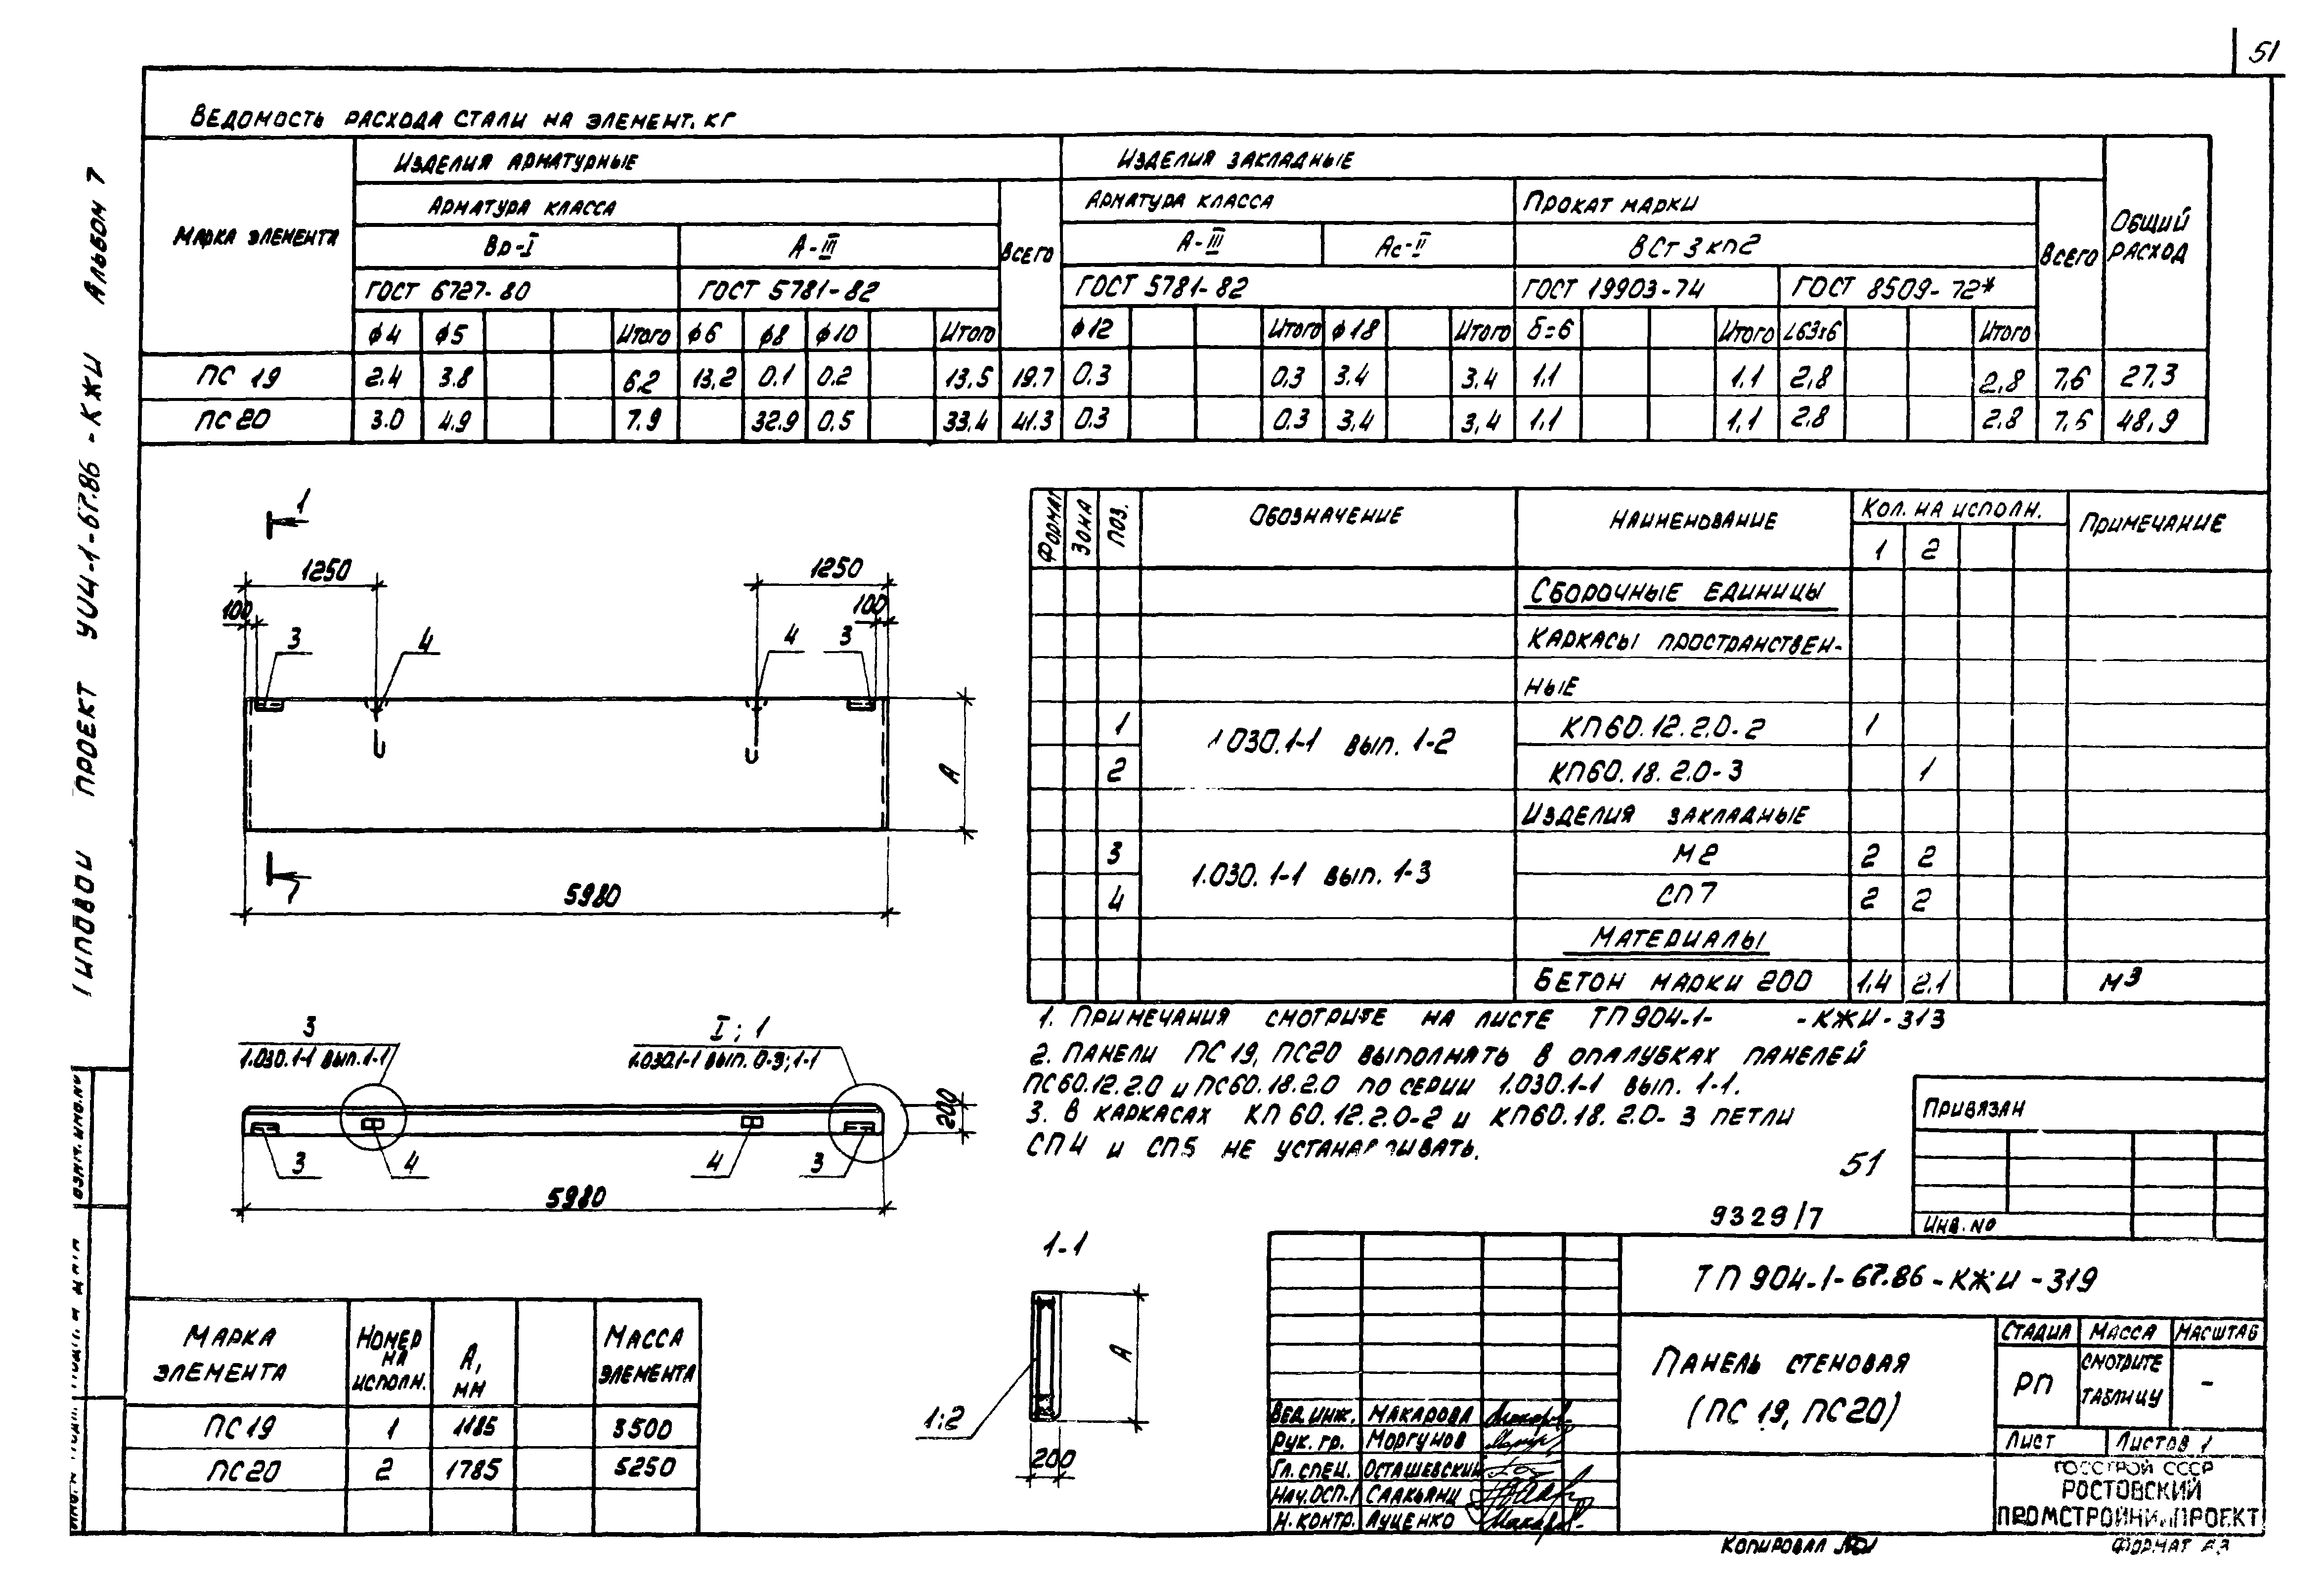 51
Ведомость расхода стали на элемент, кг
Марка элемента
Изделия арматурные
Изделия закладные
Общий расход
Арматура класса
Всего
Арматура класса
Прокат марки
Всего
Вр-I
А-III
А-III
Ас-II
ВСт3кп2
ГОСТ 6727-80
ГОСТ 5781-82
ГОСТ 5781-82
ГОСТ 19903-74
ГОСТ 8509-72*
ф4 ф5 Итого ф6 ф8 ф10 Итого ф12 Итого ф18 Итого δ=6 Итого L63х6 Итого
ПС 19 2.4 3.8 6.2 13,2 0.1 0.2 13.5 19.7 0.3 0.3 3.4 3.4 1,1 1,1 2,8 2,8 7,6 27.3
ПС20 3.0 4.9 7.9 32.9 0.5 33.4 41.3 0.3 0.3 3,4 3,4 1,1 1,1 2.8 2.8 7,6 48,9
Альбом 7
УИ4-1-67.86-КЖИ
Типовой проект
1
1250
1250
100
100
3
4
4
3
А
1
5980
3
1.030.1-1 вып.1-1
I; 1
1.030.1-1 вып. 0-3; 1-1
200
3
4
4
3
5980
Формат Зона Поз. Обозначение Наименование Кол. на исполн. Примечание
1 2
Сборочные единицы
Каркасы пространствен-
ные
1 1.030.1-1 вып. 1-2 КП60.12.2.0-2 1
2 КП60.18.2.0-3 1
Изделия закладные
3 1.030.1-1 вып. 1-3 М2 2 2
4 СП7 2 2
Материалы
Бетон марки 200 1.4 2.1 м3
1. Примечания смотрите на листе ТП904-1- -КЖИ-313
2. Панели ПС19, ПС20 выполнять в опалубках панелей
ПС60.12.2.0 и ПС60.18.2.0 по серии 1.030.1-1 вып. 1-1.
3. В каркасах КП60.12.2.0-2 и КП60.18.2.0-3 петли
СП4 и СП5 не устанавливать.
51
9329/7
Привязан
Инв. №
1-1
А
1:2
200
Марка элемента
Номер на исполн.
А, мм
Масса элемента
ПС19 1 1185 3500
ПС20 2 1785 5250
ТП904-1-67.86-КЖИ-319
Панель стеновая
(ПС 19, ПС20)
Стадия Масса Масштаб
РП смотрите таблицу -
Лист Листов 1
Вед. инж. Макарова
Рук. гр. Моргунов
Гл. спец. Осташевский
Нач. ОСП-1 Саакьянц
Н. контр. Луценко
Госстрой СССР
Ростовский
Промстройниипроект
Копировал
Формат А3
Взам. инв. №